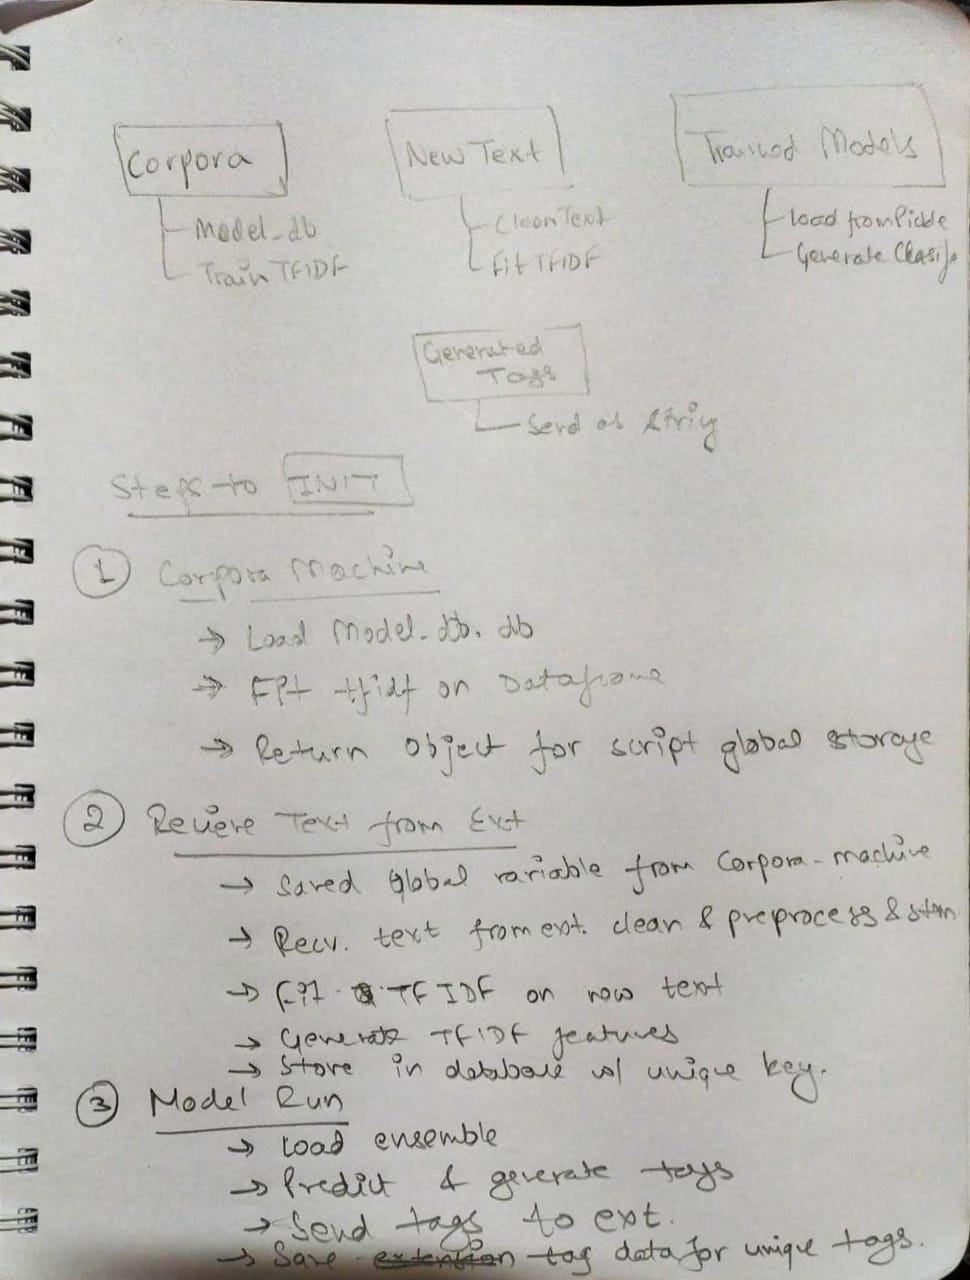 Corpora
New Text
Trained Models
Model_db
Train TFIDF
Clean Text
Fit TFIDF
Load from Pickle
Generate Clasif
Generated
Tags
Send as String
Steps to INIT
1 Corpora Machine
→ Load Model_db.db
→ Fit tfidf on Dataframe
→ Return Object for script global storage
2 Recieve Text from Ext
→ Saved global variable from Corpora-machine
→ Recv. text from ext. clean & preprocess & stem
→ Fit TFIDF on new text
→ Generate TFIDF features
→ Store in database w/ unique key.
3 Model Run
→ Load ensemble
→ Predict & generate tags
→ Send tags to ext.
→ Save extension tag data for unique tags.